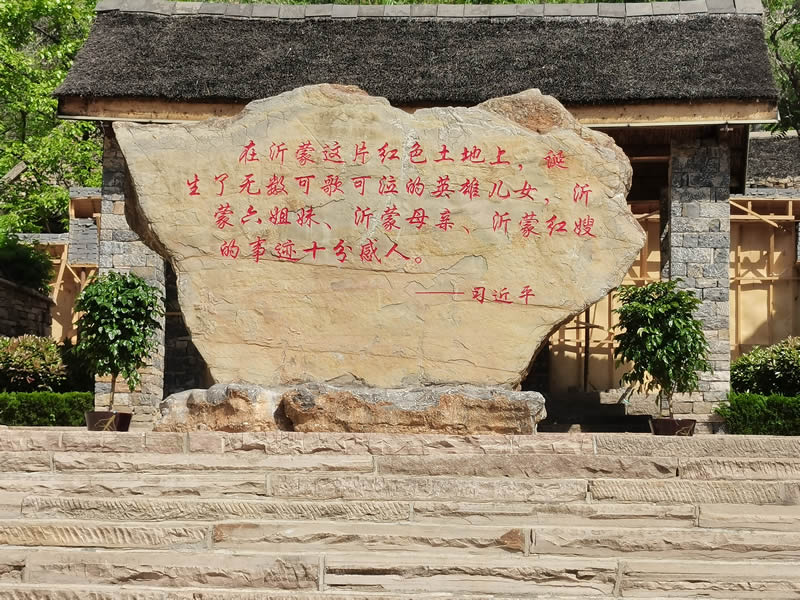 在沂蒙这片红色土地上，诞
生了无数可歌可泣的英雄儿女，沂
蒙六姐妹、沂蒙母亲、沂蒙红嫂
的事迹十分感人。
——习近平